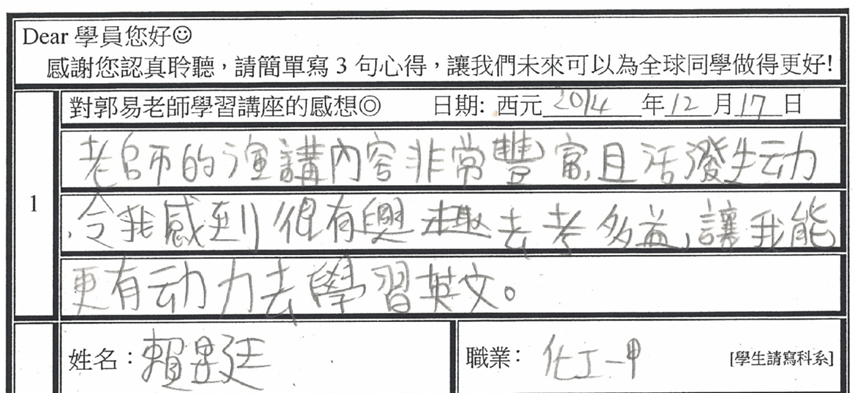 Dear 學員您好☺
感謝您認真聆聽，請簡單寫 3 句心得，讓我們未來可以為全球同學做得更好!
1
對郭易老師學習講座的感想◎ 日期: 西元 2014 年 12 月 17 日
老師的演講內容非常豐富,且活潑生动
,令我感到很有興趣去考多益,讓我能
更有动力去學習英文。
姓名：賴昱廷 職業： 化工一甲 [學生請寫科系]